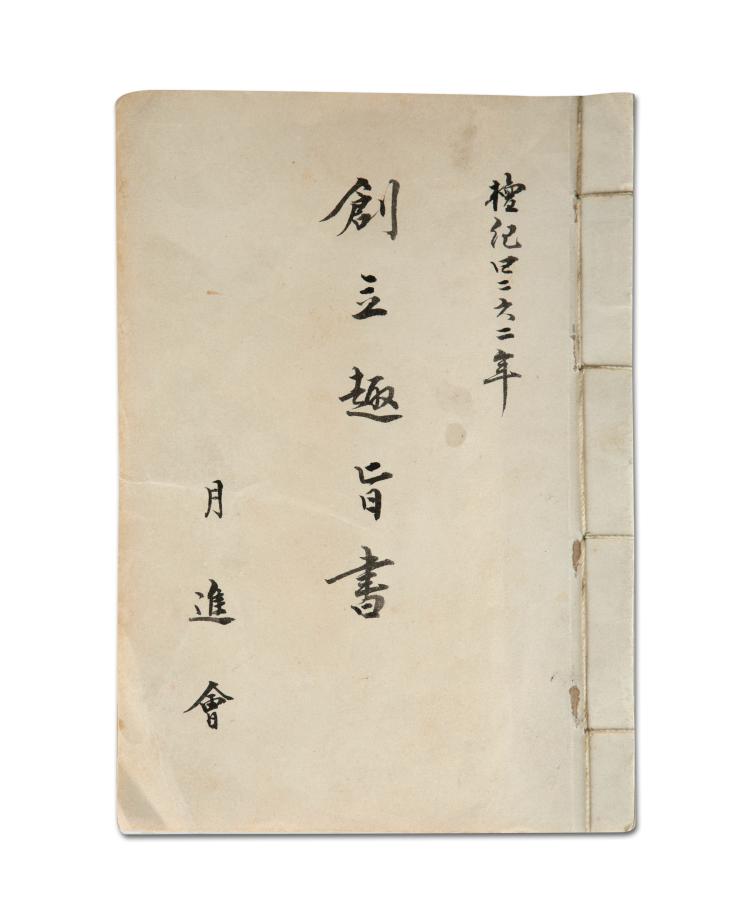 檀紀四二六二年
創立趣旨書
月進會